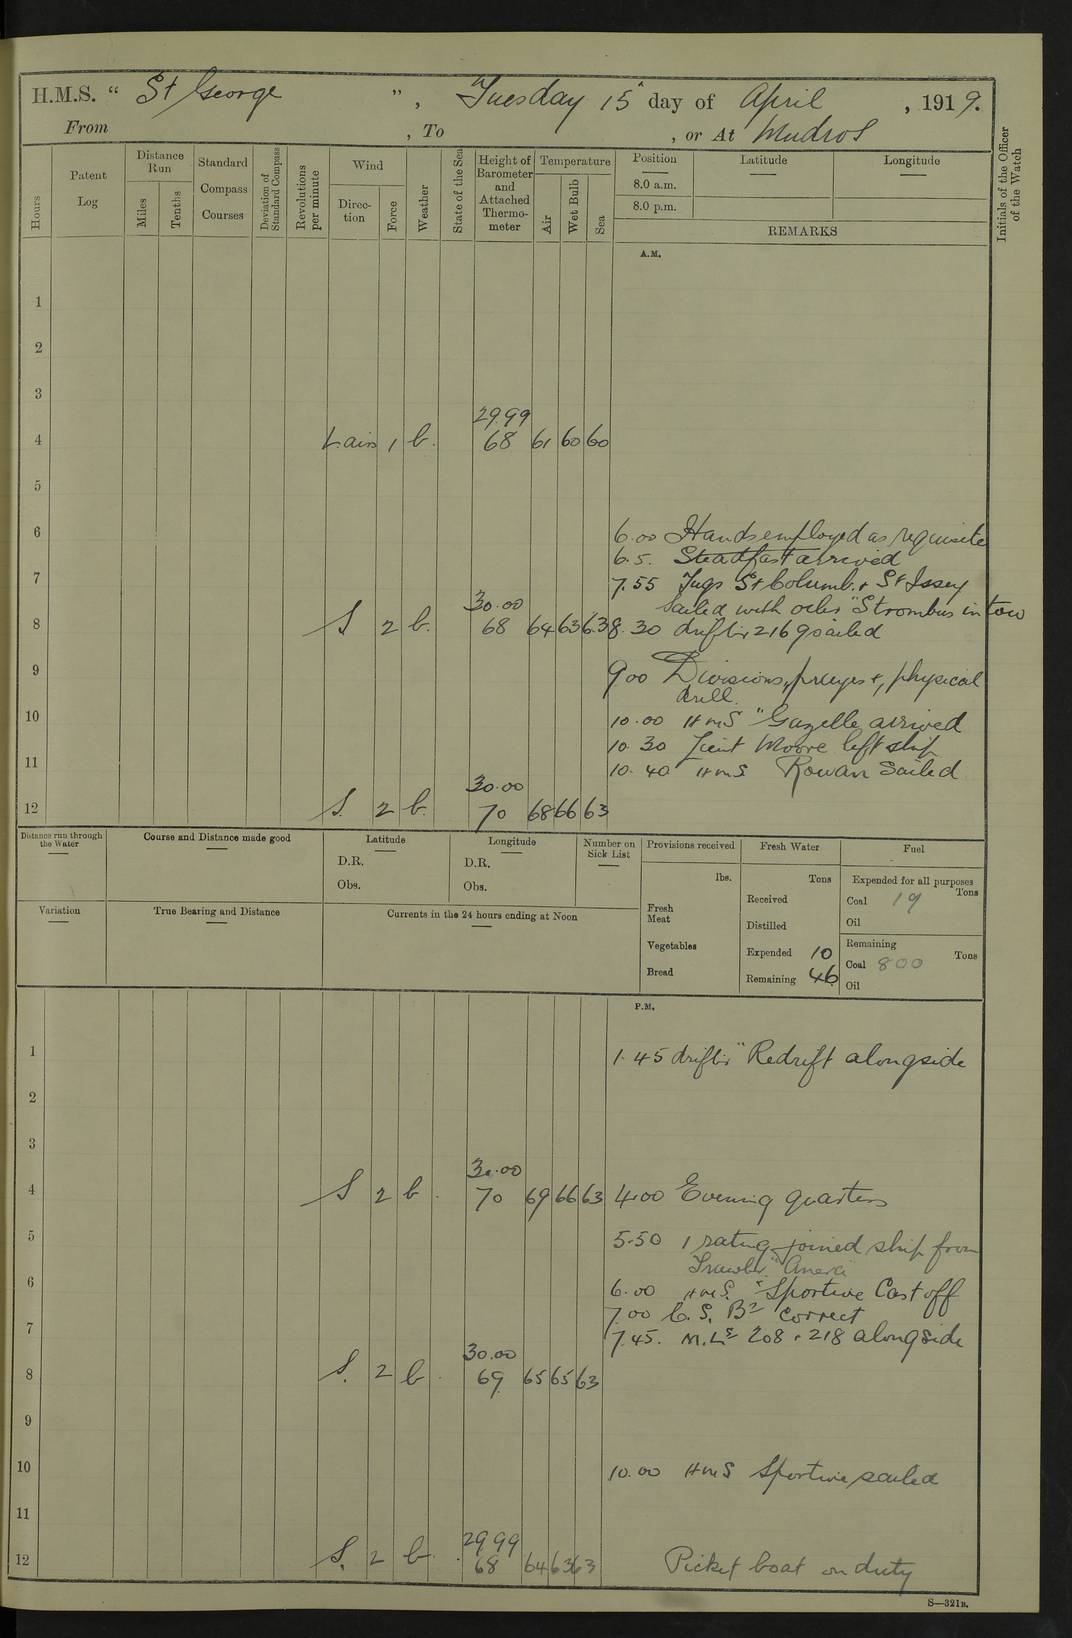 H.M.S. “ St George ”, Tuesday 15 day of April , 1919.
From , To , or At Mudros
Hours
Patent Log
Distance Run
Miles
Tenths
Standard Compass Courses
Deviation of Standard Compass
Revolutions per minute
Wind
Direc-tion
Force
Weather
State of the Sea
Height of Barometer and Attached Thermo-meter
Temperature
Air
Wet Bulb
Sea
Position
8.0 a.m.
8.0 p.m.
Latitude
Longitude
REMARKS
Initials of the Officer of the Watch
A.M.
1
2
3
29.99
4 1 b. 68 61 60 60
5
6 6.00 Hands employed as requisite
6.5. Steadfast arrived
7 7.55 Tugs St Columb. + St Issey
sailed with oiler "Strombus in tow
30.00
8 S 2 b. 68 64 63 63 8.30 drifter 2169 sailed
9 9.00 Divisions, prayers +, physical
drill.
10 10.00 HMS "Gazelle arrived
10.30 Lieut Moore left ship
11 10.40 HMS Rowan Sailed
30.00
12 S. 2 b. 70 68 66 63
Distance run through the Water
Course and Distance made good
Latitude
D.R.
Obs.
Longitude
D.R.
Obs.
Number on Sick List
Provisions received
lbs.
Fresh Meat
Vegetables
Bread
Fresh Water
Tons
Received
Distilled
Expended 10
Remaining 46
Fuel
Expended for all purposes
Tons
Coal 19
Oil
Remaining
Tons
Coal 800
Oil
Variation
True Bearing and Distance
Currents in the 24 hours ending at Noon
P.M.
1 1.45 drifter "Redrift alongside
2
3
30.00
4 S 2 b. 70 69 66 63 4.00 Evening quarters
5 5.50 1 rating joined ship from
Trawler "
6 6.00 HMS. "Sportive Cast off
7.00 C. S. Bs correct
7 7.45. M.Ls 208 + 218 alongside
30.00
8 S. 2 b. 69 65 65 63
9
10 10.00 HMS Sportive sailed
11
29.99
12 S. 2 b. 68 64 63 63 Picket boat on duty
S—321B.